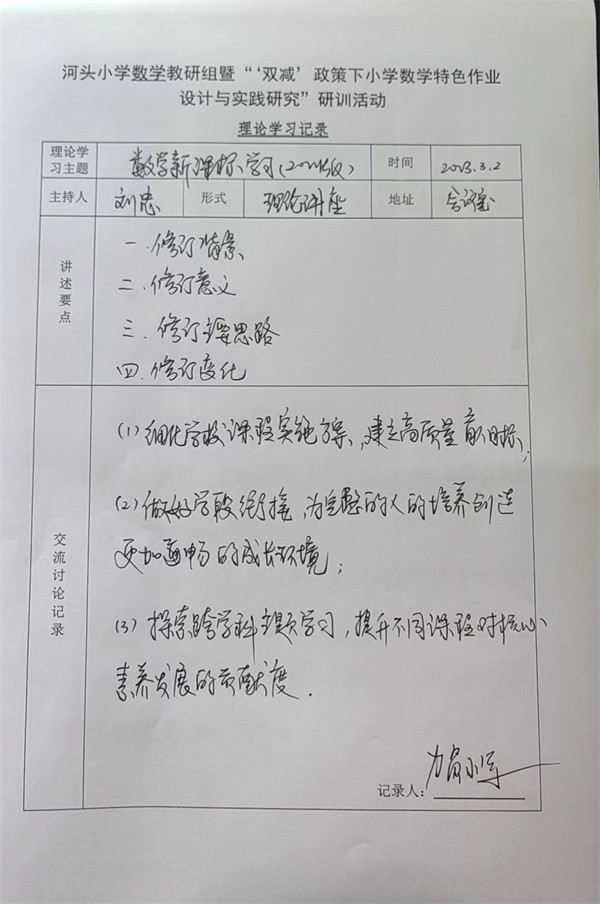 河头小学数学教研组暨“‘双减’政策下小学数学特色作业
设计与实践研究”研训活动
理论学习记录
理论学习主题 数学新课标学习(2022版) 时间 2023.3.2
主持人 刘忠 形式 理论讲座 地址 会议室
讲述要点
一.修订背景
二.修订意义
三.修订主要思路
四.修订变化
交流讨论记录
(1)细化学校课程实施方案,建立高质量育人目标;
(2)做好学段衔接,为完整的人的培养创造
更加通畅的成长环境;
(3)探索跨学科主题学习,提升不同课程对核心
素养发展的贡献度.
记录人: